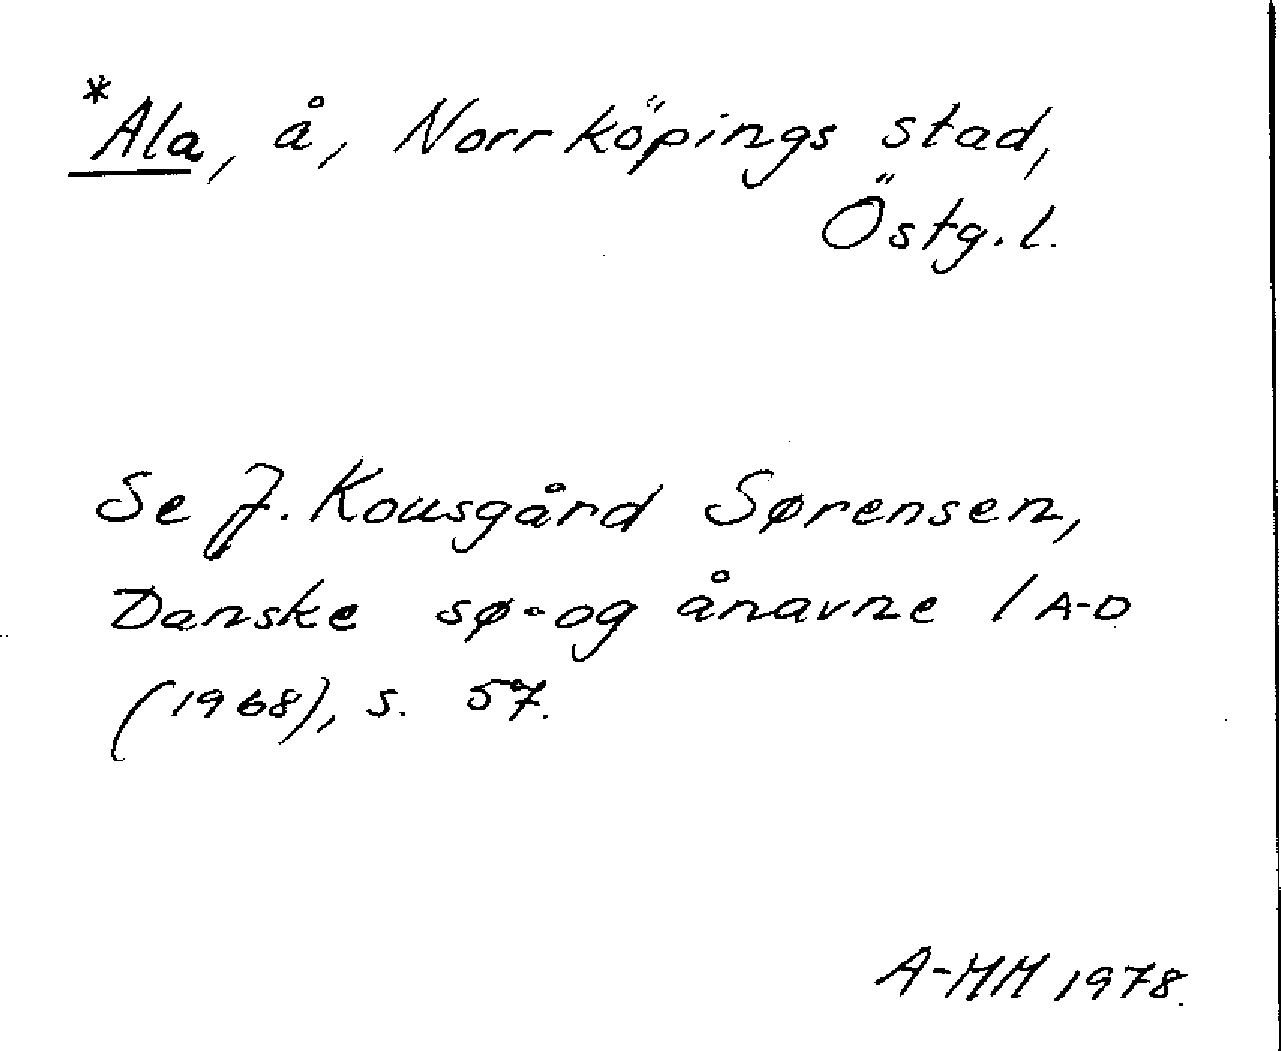 *Ala, å, Norrköpings stad,
Östg.l.
Se J. Kousgård Sørensen,
Danske sø- og ånavne 1 A-D
(1968), s. 57.
A-MM 1978.